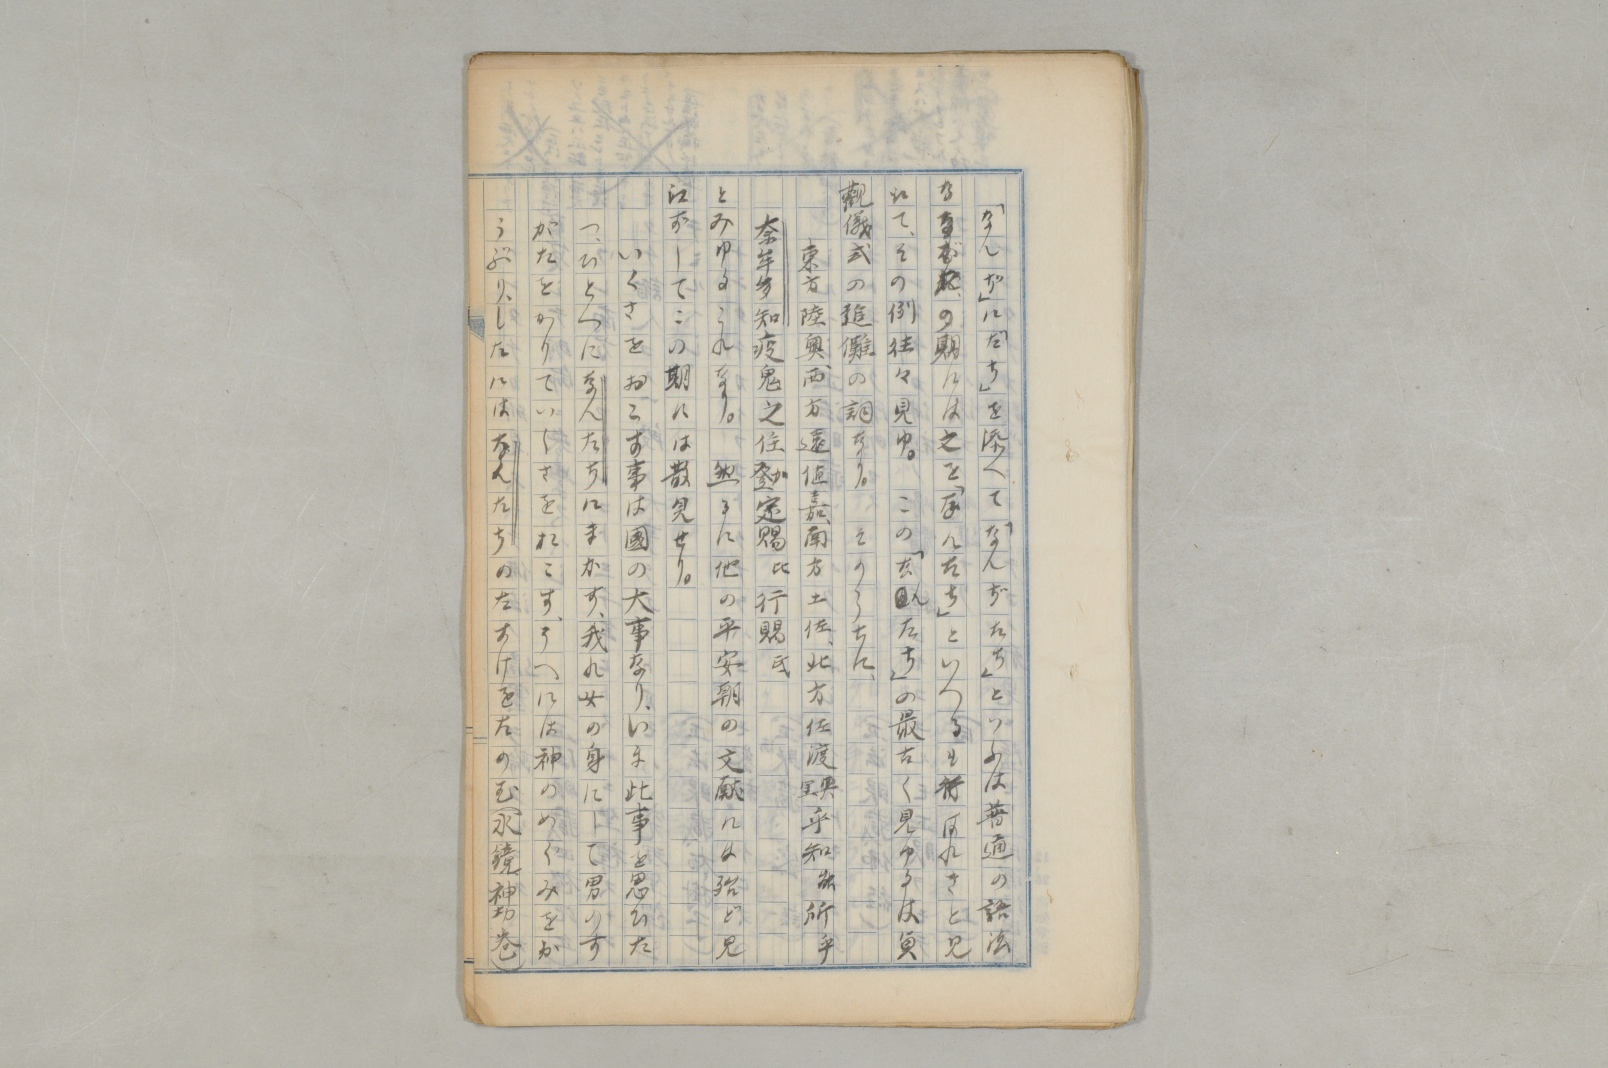 「なんぢ」に「たち」を添へて「なんぢたち」といふは普通の語法
なるが、の期には之を「なんたち」といへるも行はれきと見
えて、その例往々見ゆ。この「なんたち」の最古く見ゆるは貞
觀儀式の追儺の詞なり。そのうちに、
東方陸奥西方遠値嘉南方土佐、北方佐渡與里乎知能所乎
奈牟多知疫鬼之住加登定賜比行賜氐
とみゆるこれなり。然るに他の平安朝の文獻には殆ど見
えずしてこの期には散見せり。
いくさをおこす事は國の大事なり、いま此事を思ひた
つ、ひとへになんたちにまかす、我れ女の身にして男のす
がたをかりていくさをおこす、うへには神のめぐみをか
うぶり、したにはなんたちのたすけをたのむ(水鏡、神功卷)